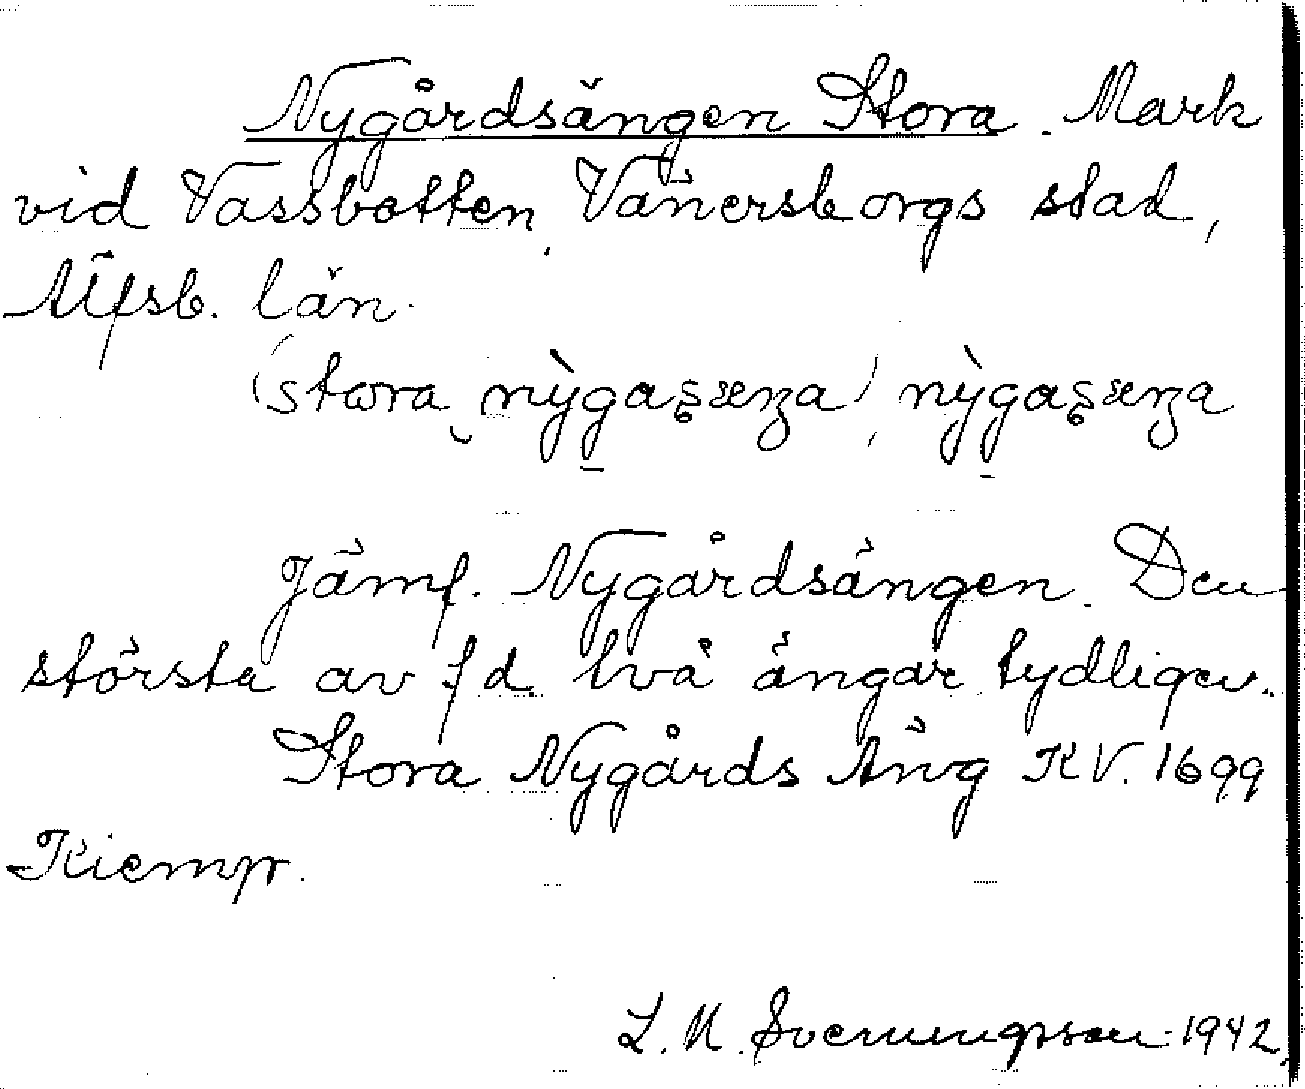 Nygårdsängen Stora. Mark
vid Vassbotten, Vänersborgs stad,
Älfsb. län.
(stora nỳgaʂæŋa) nỳgaʂæŋa
Jämf. Nygårdsängen. Den
största av f d. två ängar tydligen.
Stora Nygårds Äng KV. 1699
Kiempr.
L. M. Svenungsson 1942.